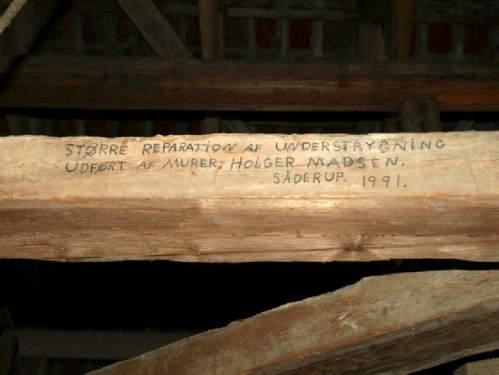 STØRRE REPARATION AF UNDERSTRYGNING
UDFØRT AF MURER, HOLGER MADSEN.
SÅDERUP. 1991.